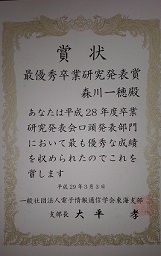 賞状
最優秀卒業研究発表賞
森川一穂殿
あなたは平成28年度卒業
研究発表会口頭発表部門
において最も優秀な成績
を収められたのでこれを
賞します
平成29年3月3日
一般社団法人電子情報通信学会東海支部
支部長 大平 孝